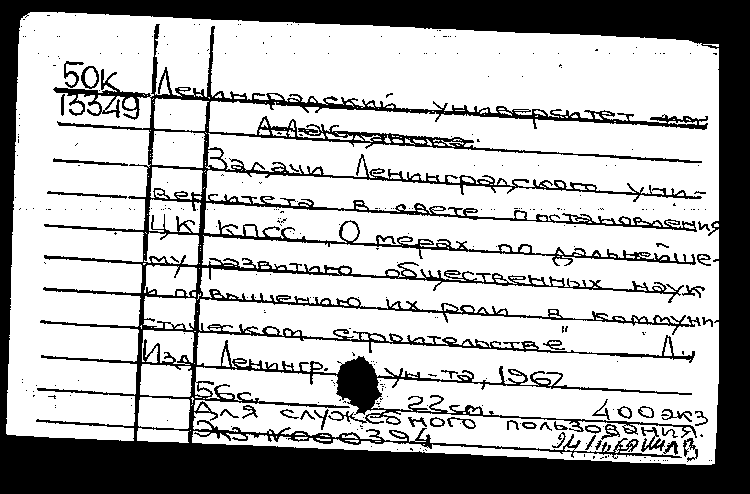 50К Ленинградский университет им.
13349 А.А.Жданова.
Задачи Ленинградского уни-
верситета в свете постановления
ЦК КПСС. „О мерах по дальнейше-
му развитию общественных наук
и повышению их роли в коммуни-
стическом строительстве" Л.,
Изд. Ленингр. ун-та, 1967.
56с. 22см. 400экз
Для служебного пользования.
Экз. №000394